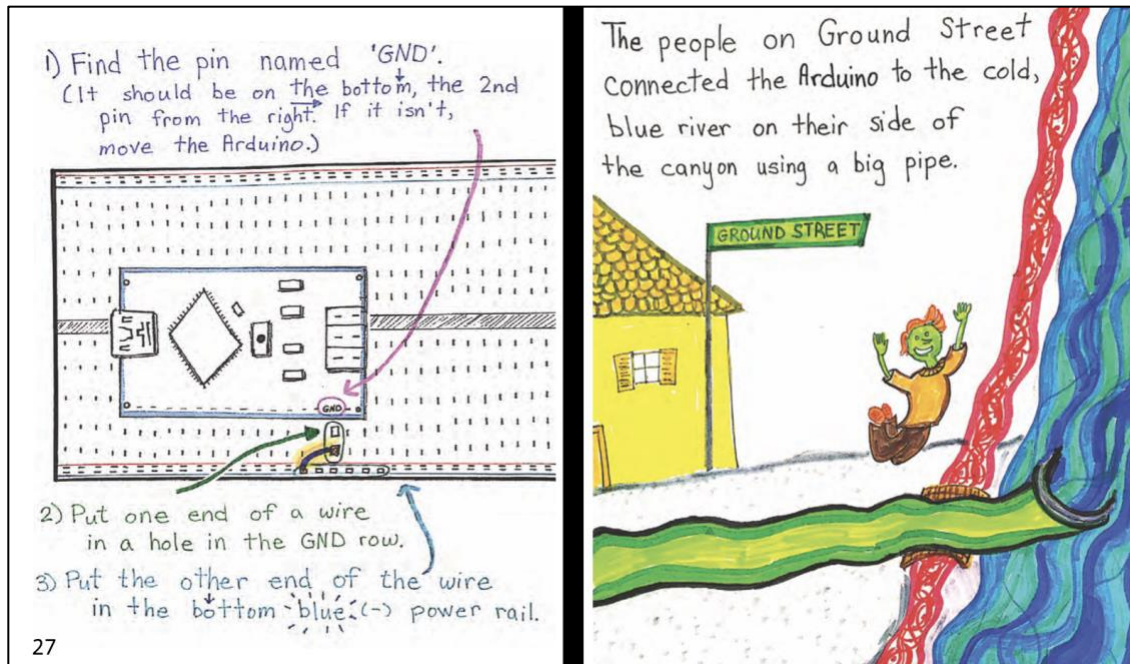 1) Find the pin named 'GND'.
(It should be on the bottom, the 2nd
pin from the right. If it isn't,
move the Arduino.)
GND
2) Put one end of a wire
in a hole in the GND row.
3) Put the other end of the wire
in the bottom blue (-) power rail.
27
The people on Ground Street
connected the Arduino to the cold,
blue river on their side of
the canyon using a big pipe.
GROUND STREET